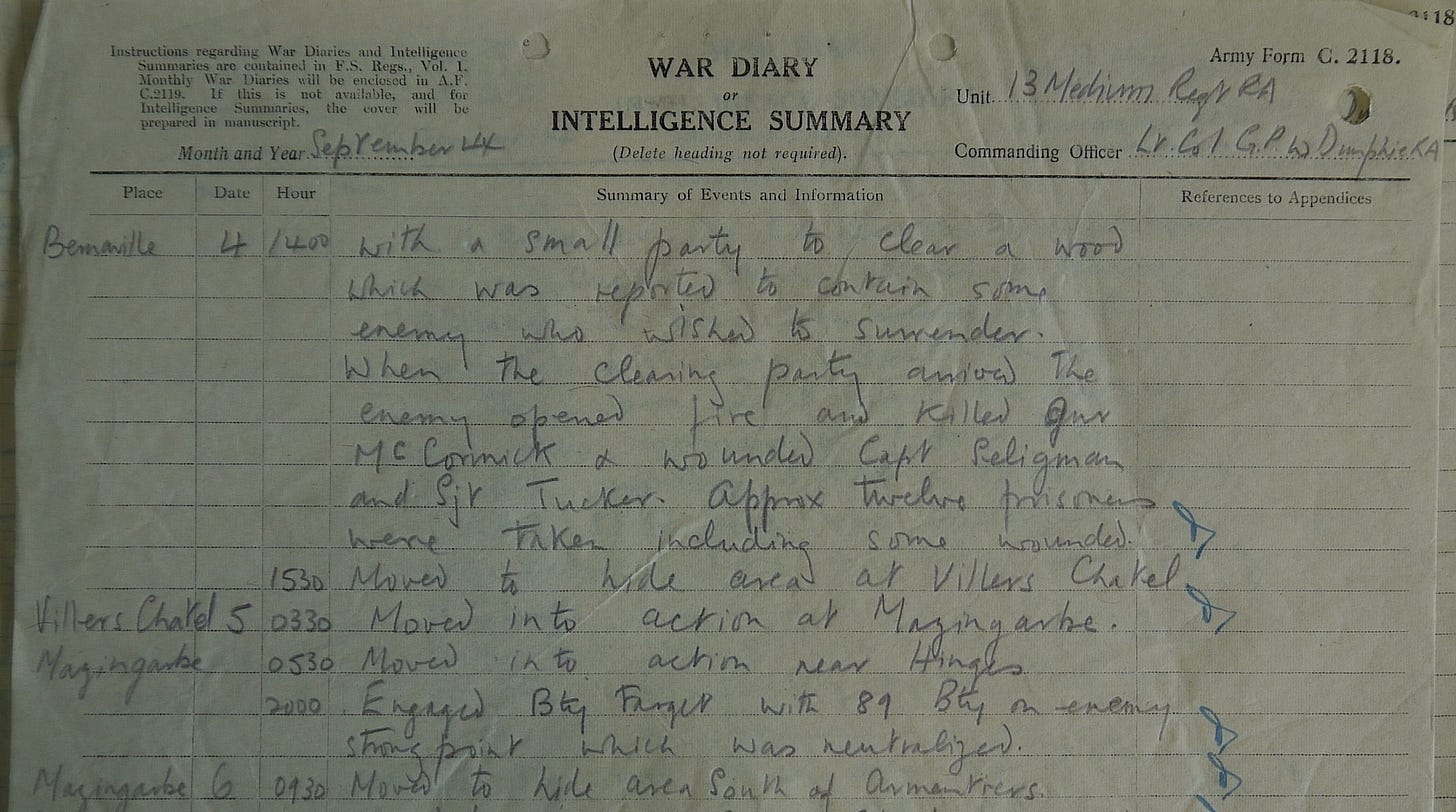 2118
Instructions regarding War Diaries and Intelligence
Summaries are contained in F.S. Regs., Vol. 1.
Monthly War Diaries will be enclosed in A.F.
C.2119. If this is not available, and for
Intelligence Summaries, the cover will be
prepared in manuscript.
Month and Year September 44
WAR DIARY
or
INTELLIGENCE SUMMARY
(Delete heading not required).
Army Form C. 2118.
Unit 13 Medium Regt RA
Commanding Officer Lt. Col G.P. W Dunphie RA
Place Date Hour Summary of Events and Information References to Appendices
Bernaville 4 1400 with a small party to clear a wood
which was reported to contain some
enemy who wished to surrender.
When the clearing party arrived the
enemy opened fire and killed Gnr
McCormick & wounded Capt Seligman
and Sjt Tucker. Approx twelve prisoners
were taken including some wounded.
1530 Moved to hide area at Villers Chatel
Villers Chatel 5 0330 Moved into action at Mazingarbe.
Mazingarbe 0530 Moved into action near Hinges
2000 Engaged Bty Target with 89 Bty on enemy
strong point which was neutralized.
Mazingarbe 6 0930 Moved to hide area South of Armentiers.